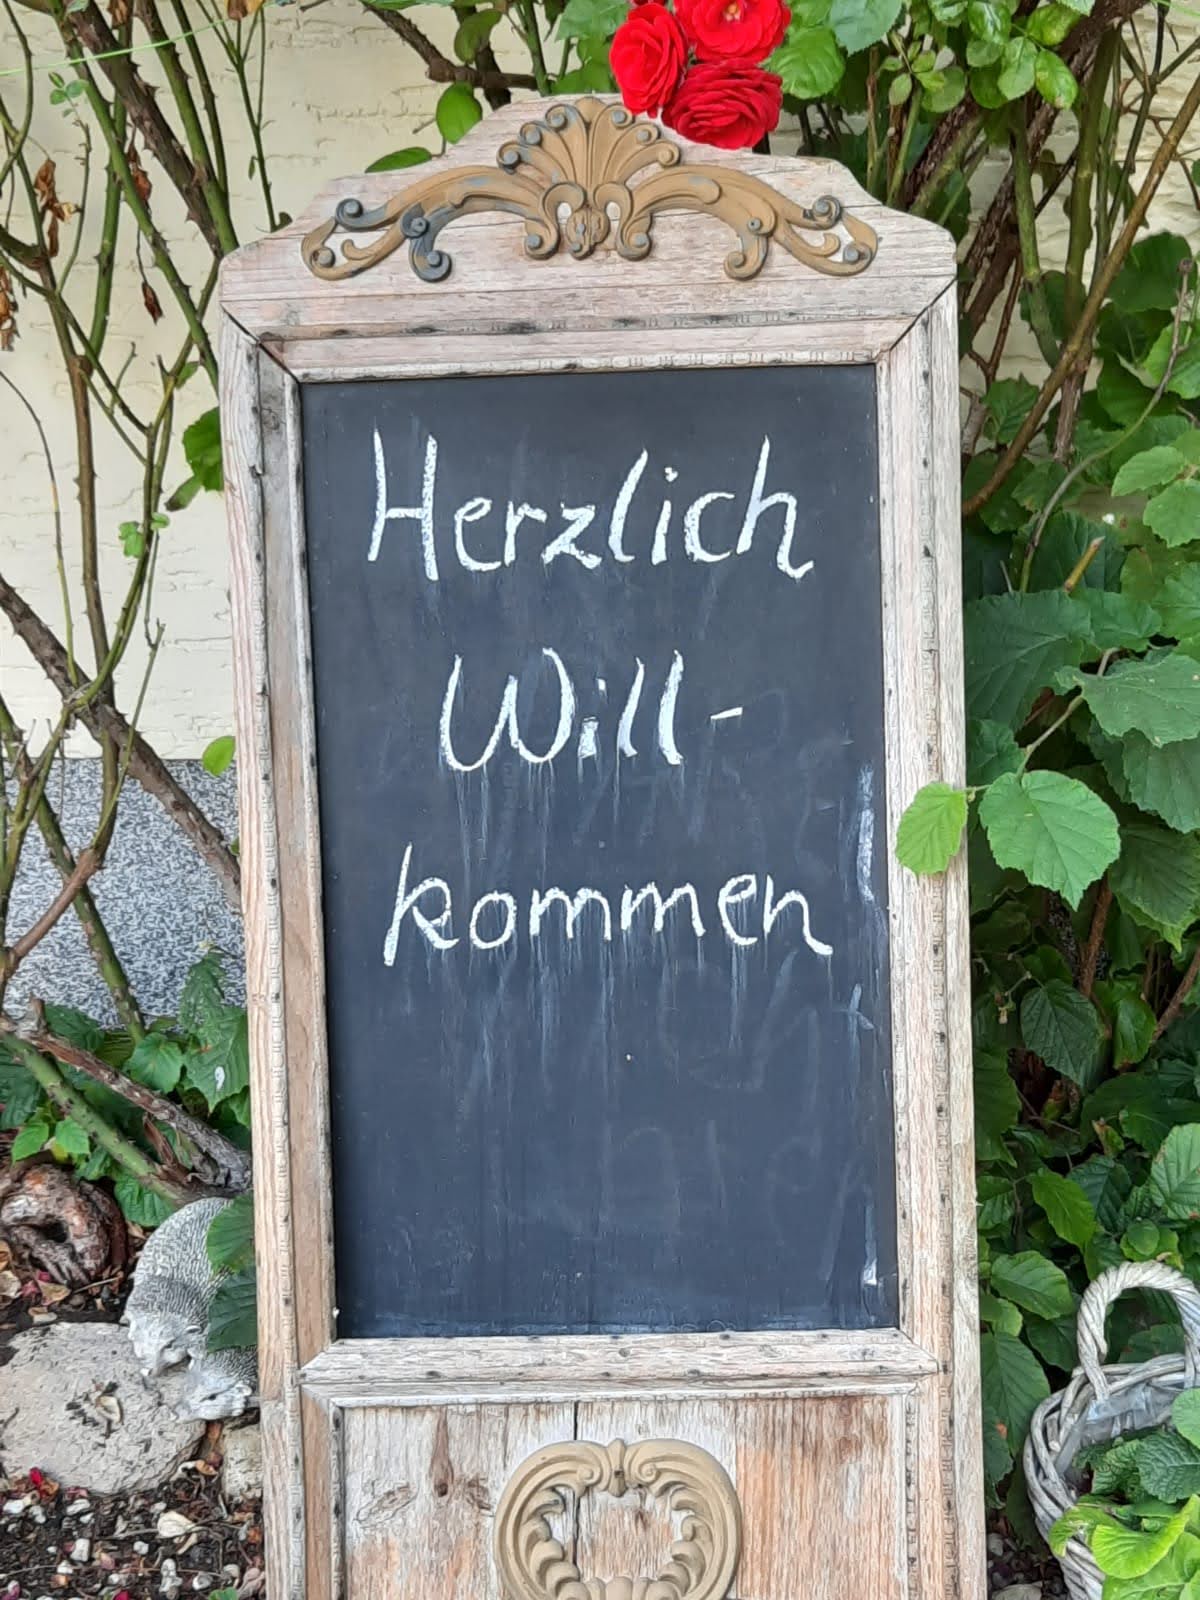 Herzlich
Will-
kommen